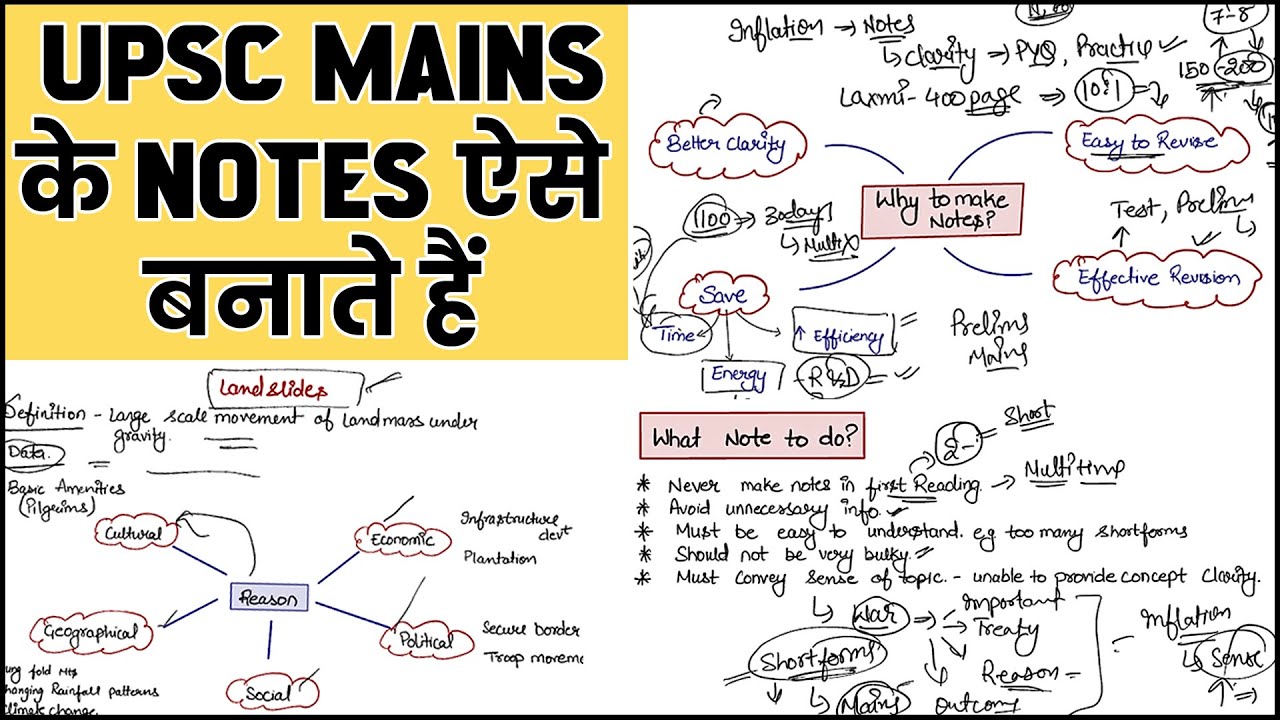 UPSC MAINS
के NOTES ऐसे
बनाते हैं
Inflation → Notes
↳ Clarity → PYQ, Practice
Laxmi - 400 page ⇒ 10:1
7-8
150-200
Better Clarity
Easy to Revise
Why to make
Notes?
1100 → 30days
↳ Multi X
Test, Prelims
Effective Revision
Save
Time
↑ Efficiency
Energy
R&D
Prelims
Mains
Landslides
Definition - Large scale movement of landmass under
gravity.
Data.
Basic Amenities
(Pilgrims)
Cultural
Economic
Infrastructure
devt
Plantation
Reason
Geographical
Political
Secure border
Troop moveme
Social
ung fold Mts
hanging Rainfall patterns
climate change.
What Note to do?
2- = Short
* Never make notes in first Reading. → Multitimp
* Avoid unnecessary info.
* Must be easy to understand. eg too many shortforms
* Should not be very bulky.
* Must convey sense of topic. - unable to provide concept clarity.
↳ War ⇒ Important
→ Treaty
Reason
Outcome
Shortforms
↳ Mains
Inflation
↳ Sense